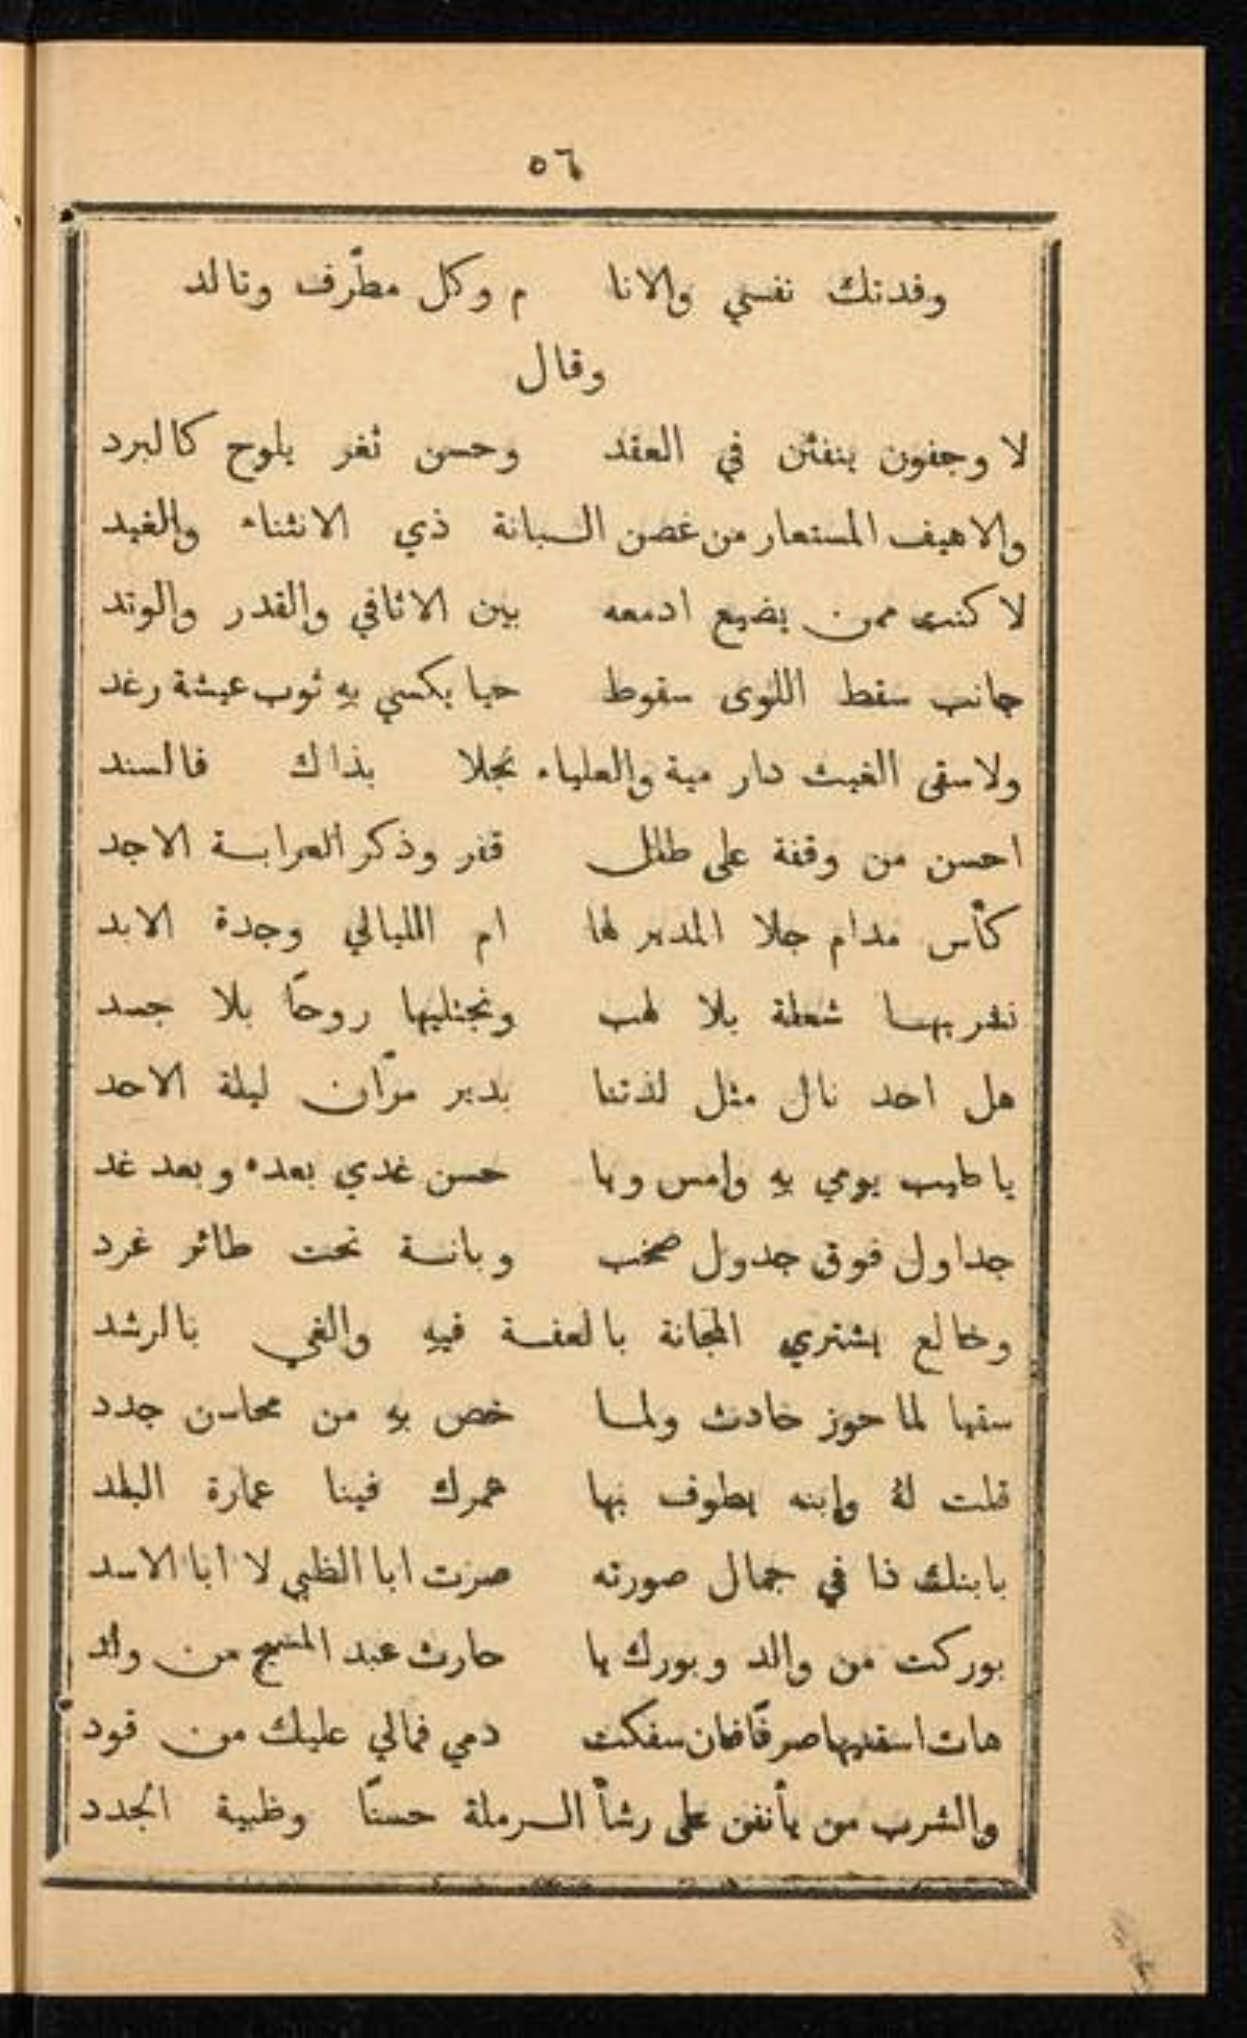 ٥٦
وفدتك نفسي والانا م وكل مطّرف وتالد
وقال
لا وجفون ينفثن في العقد وحسن ثغر يلوح كالبرد
والاهيف المستعار من غصن الـبانة ذي الانثناء والغيد
لا كنت ممن يضيع ادمعه بين الاثافي والقدر والوتد
جانب سقط اللوى سقوط حيا يكسي به ثوب عيشة رغد
ولا سقى الغيث دار مية والعلياء نجلا بذاك فالسند
احسن من وقفة على طلل قفر وذكر العرابـة الاجد
كأس مدام جلا المدير لها ام الليالي وجدة الابد
نشربها شعلة بلا لهب ونجتليها روحًا بلا جسد
هل احد نال مثل لذتنا بدير مرّان ليلة الاحد
يا طيب يومي به وامس ويا حسن غدي بعده وبعد غد
جداول فوق جدول صخب وبانة تحت طائر غرد
وخالع يشتري المجانة بالعفة فيه والغي بالرشد
سقيا لما حوز حادث ولما خص به من محاسن جدد
قلت له وابنه يطوف بها عمرك فينا عمارة البلد
بابنك ذا في جمال صورته صرت ابا الظبي لا ابا الاسد
بوركت من والد وبورك يا حارث عبد المسيح من ولد
هات اسقنيها صرفًا فان سفكت دمي فمالي عليك من قود
والشرب من يأنفن على رشأ الـرملة حسنًا وظبية الجدد